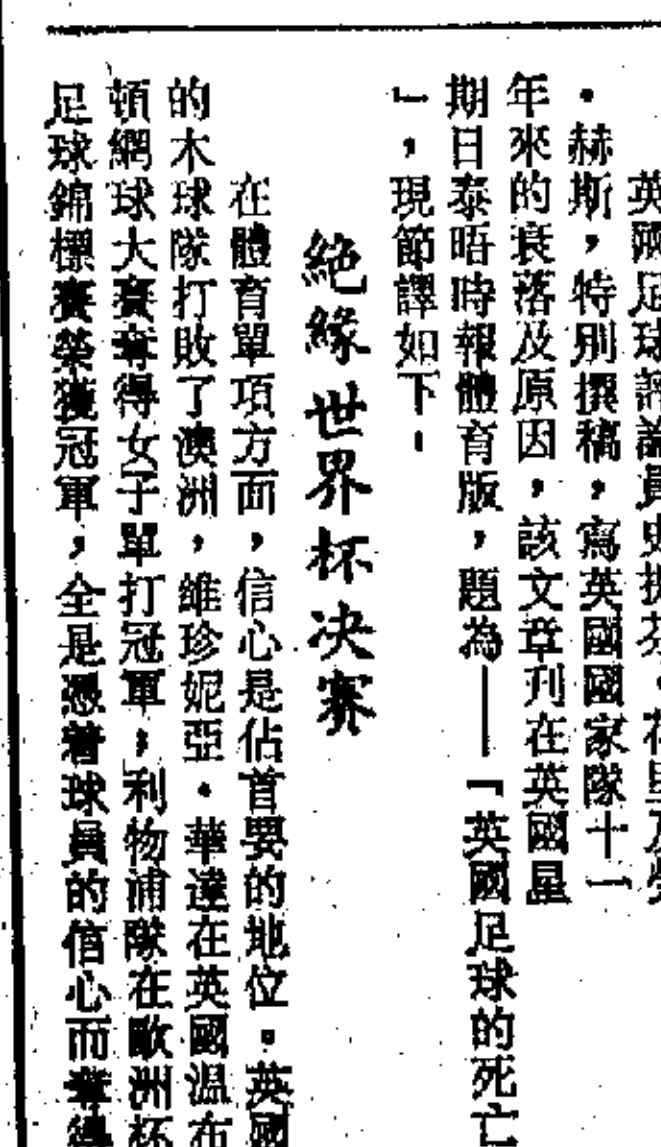 英國足球評論員史提芬・花里及勞
・赫斯，特別撰稿，寫英國國家隊十一
年來的衰落及原因，該文章刋在英國星
期日泰晤時報體育版，題為——「英國足球的死亡
」，現節譯如下：
絶緣世界杯決赛
在體育單項方面，信心是佔首要的地位。英國
的木球隊打敗了澳洲，維珍妮亞・華達在英國温布
頓網球大賽奪得女子單打冠軍，利物浦隊在歐洲杯
足球錦標賽榮獲冠軍，全是憑着球員的信心而奪得